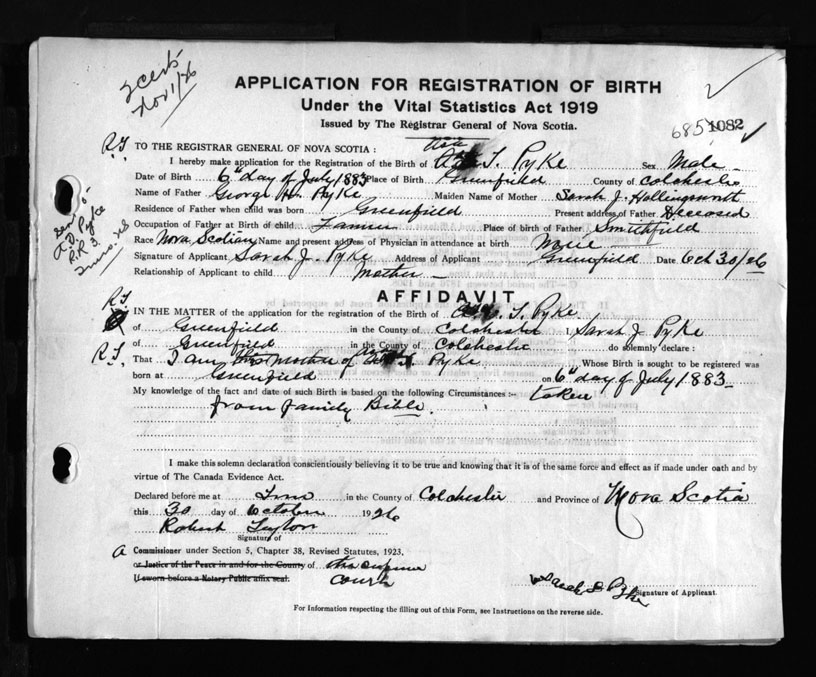 2 certs
Nov 1/26
APPLICATION FOR REGISTRATION OF BIRTH
Under the Vital Statistics Act 1919
Issued by The Registrar General of Nova Scotia.
685 1082
R.T. TO THE REGISTRAR GENERAL OF NOVA SCOTIA :
I hereby make application for the Registration of the Birth of Asa T. Pyke Sex Male
Date of Birth 6th day of July 1883 Place of Birth Greenfield County of Colchester
Name of Father George H. Pyke Maiden Name of Mother Sarah J. Hollingsworth
Residence of Father when child was born Greenfield Present address of Father Deceased
Occupation of Father at Birth of child Farmer Place of birth of Father Smithfield
Race Nova Scotian Name and present address of Physician in attendance at birth None
Signature of Applicant Sarah J. Pyke Address of Applicant Greenfield Date Oct 30/26
Relationship of Applicant to child Mother
A.D. Pyke
R.R. 3.
AFFIDAVIT
R.T.
IN THE MATTER of the application for the registration of the Birth of T. Pyke
of Greenfield in the County of Colchester I, Sarah J. Pyke
of Greenfield in the County of Colchester do solemnly declare :
R.T. That I am the mother of Pyke Whose Birth is sought to be registered was
born at Greenfield on 6th day of July 1883
My knowledge of the fact and date of such Birth is based on the following Circumstances :— taken
from family Bible.
I make this solemn declaration conscientiously believing it to be true and knowing that it is of the same force and effect as if made under oath and by
virtue of The Canada Evidence Act.
Declared before me at Truro in the County of Colchester and Province of Nova Scotia
this 30 day of October 1926
Robert Layton
Signature of
A Commissioner under Section 5, Chapter 38, Revised Statutes, 1923.
or Justice of the Peace in and for the County of the supreme
If sworn before a Notary Public affix seal. court
Sarah J. Pyke Signature of Applicant.
For Information respecting the filling out of this Form, see Instructions on the reverse side.